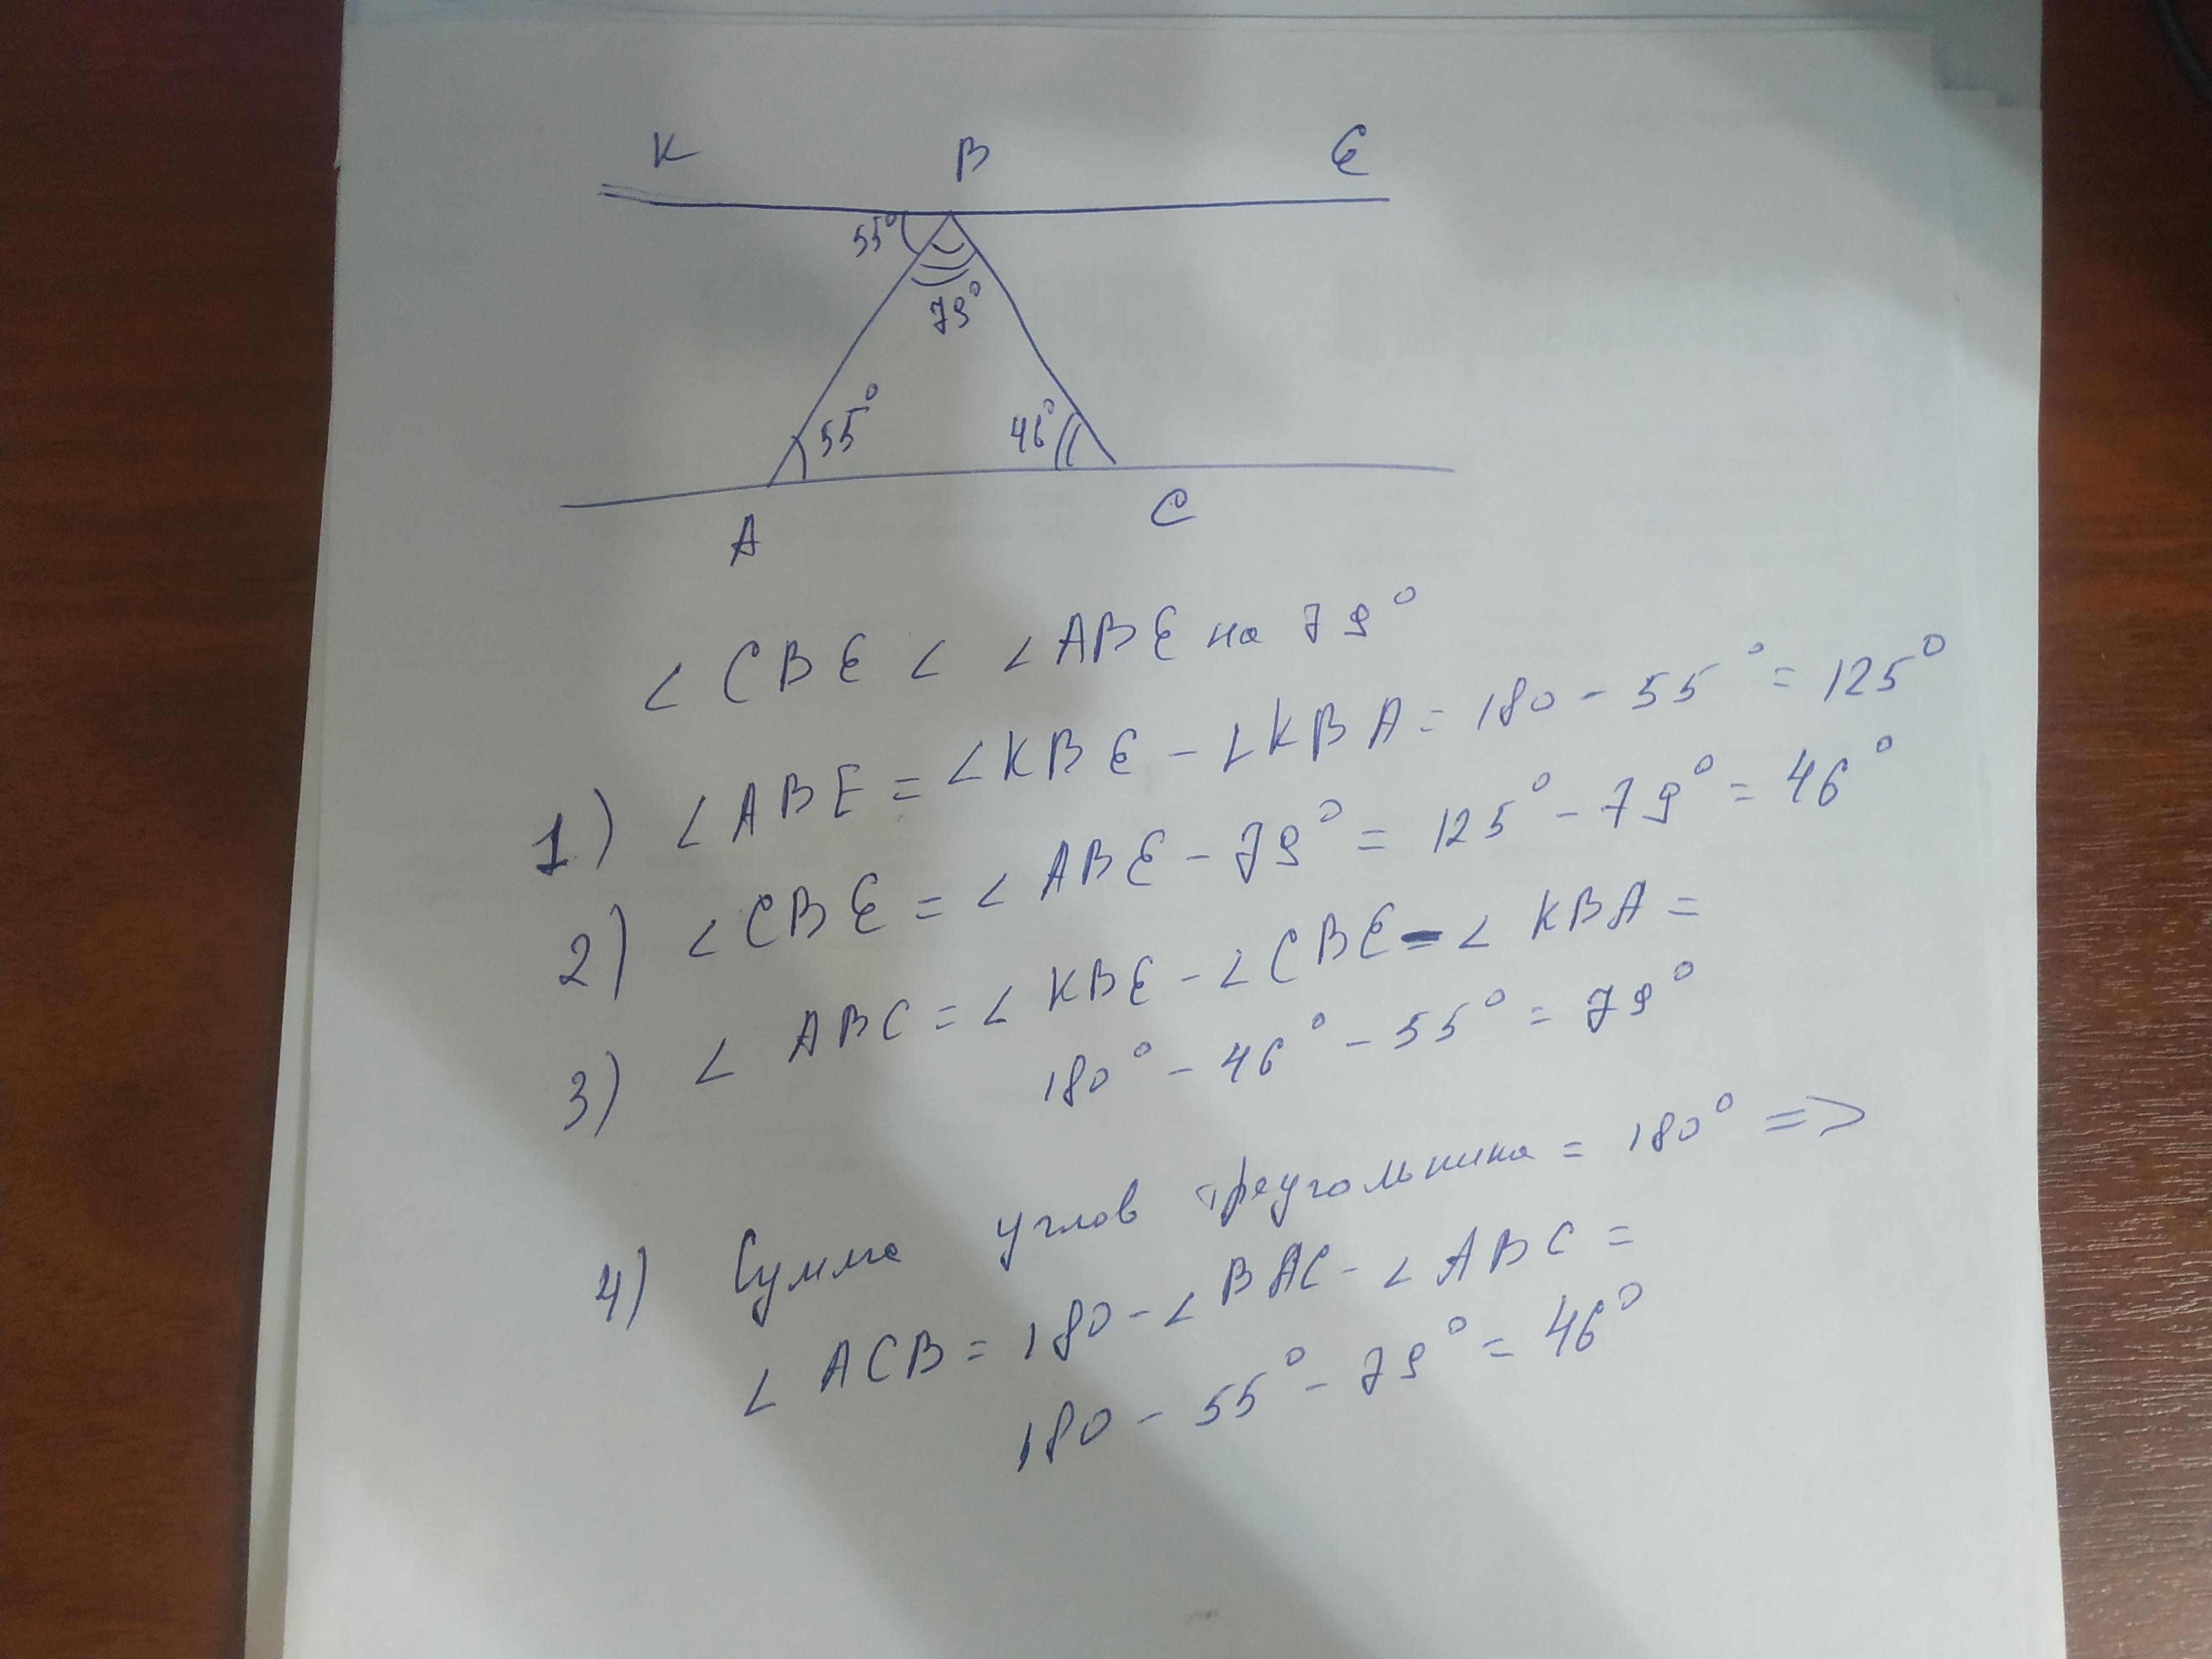 К В Е
55°
79°
55° 46°
А С
∠ CBE < ∠ABE на 79°
1) ∠ABE = ∠KBE - ∠KBA = 180 - 55° = 125°
2) ∠CBE = ∠ABE - 79° = 125° - 79° = 46°
3) ∠ ABC = ∠ KBE - ∠CBE - ∠ KBA =
180° - 46° - 55° = 79°
4) Сумма углов треугольника = 180° =>
∠ ACB = 180 - ∠BAC - ∠ABC =
180 - 55° - 79° = 46°